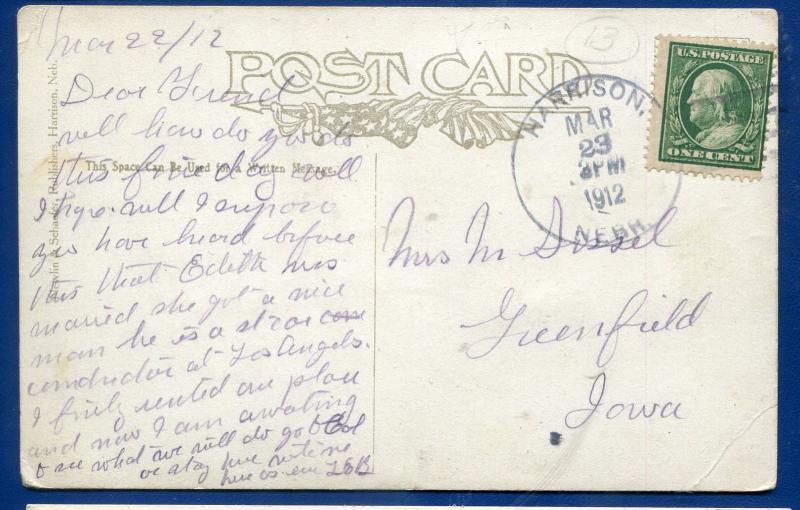 Mar 22/12
13
POST CARD
Dear Friend
well how do you do
This Space Can Be Used for a Written Message.
this fine day well
I hope. well I supose
you have heard before
this that Edith was
maried she got a nice
man he is a street car
conductor at Los Angels.
I finly rented our place
and now I am awating
to see what we will do go to Col
or stay here
& Schaefer, Publishers, Harrison, Neb.
HARRISON,
MAR
23
3 PM
1912
NEBR.
U.S. POSTAGE
ONE CENT
Mrs M Sissel
Greenfield
Iowa